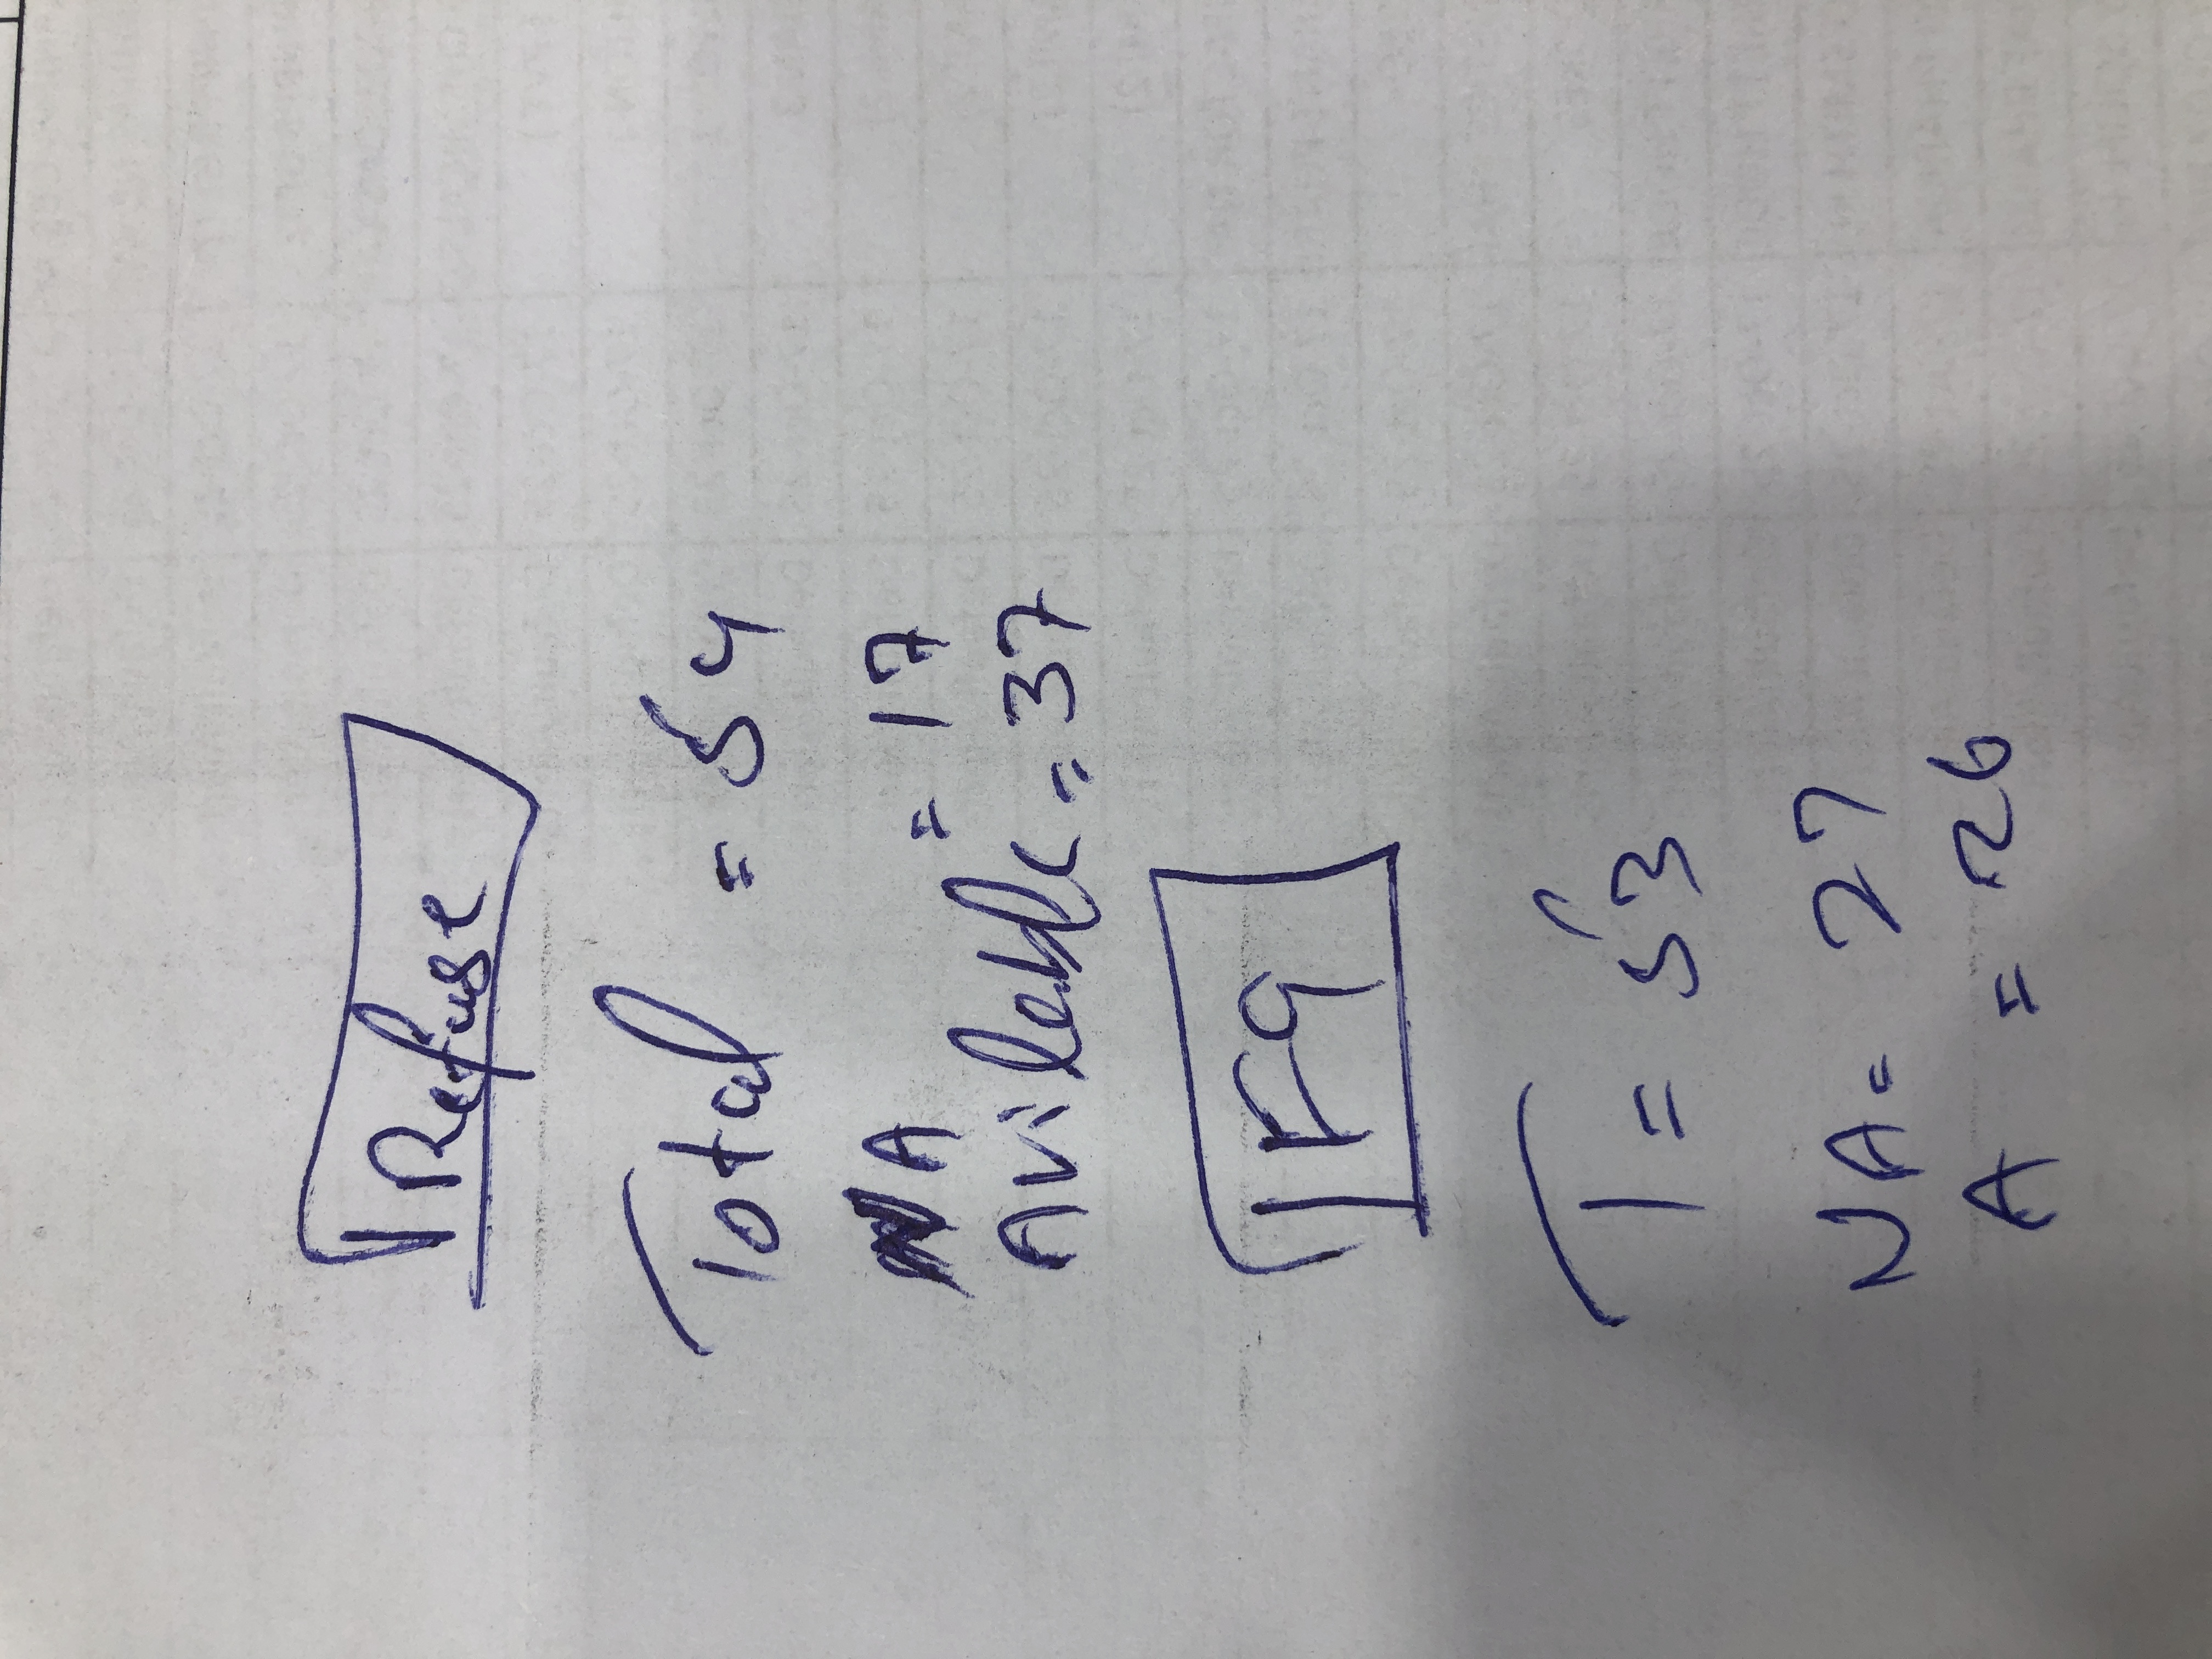 Refuse
Total = 54
NA = 17
Avilable = 37
IEq
T = 53
NA = 27
A = 26